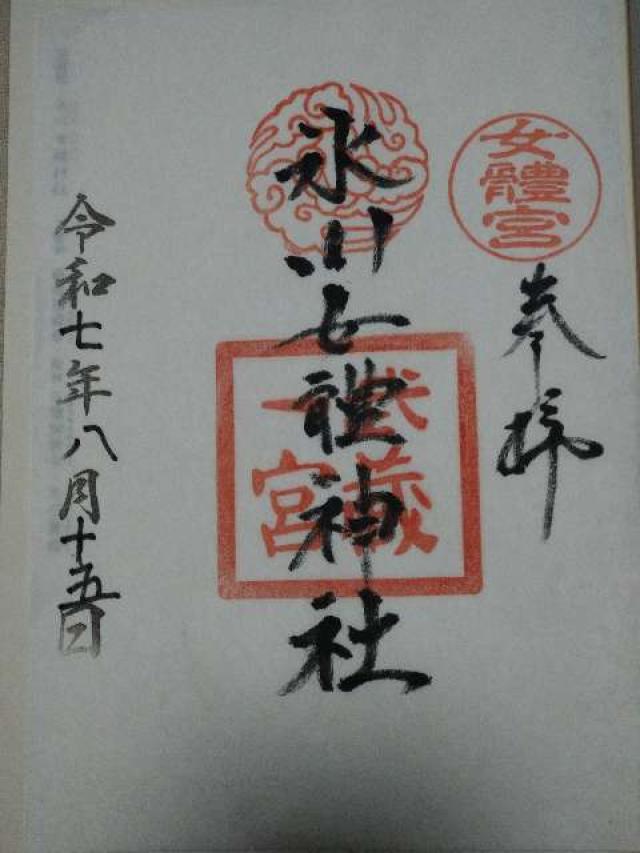 女體宮
奉拝
武蔵
一宮
氷川女體神社
令和七年八月十五日